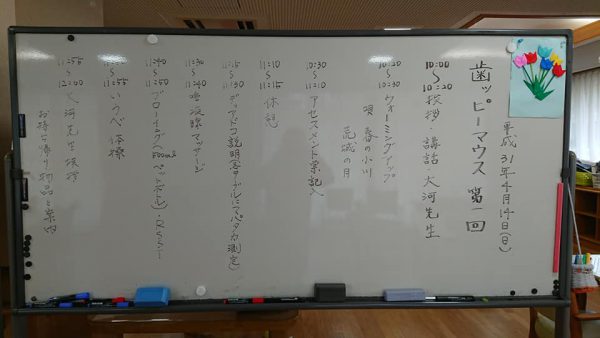 平成31年4月14日(日)
歯ッピーマウス 第一回
10:00〜10:20 挨拶・講話 大河先生
10:20〜10:30 ウォーミングアップ
唄 春の小川
荒城の月
10:30〜11:10 アセスメント票記入
11:10〜11:15 休憩
11:15〜11:30 ディアドコ説明(各テーブルにてパタカ測定)
11:30〜11:40 唾液腺マッサージ
11:40〜11:50 ブローイング(500mlペットボトル)
11:55 いうべ体操
11:55〜12:00 大河先生挨拶
お持ち帰り物品と案内